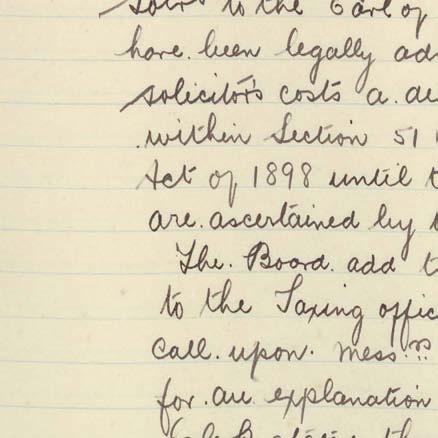 Solrs to the Earl of
have been legally ad
solicitor's costs a de
within Section 51
Act of 1898 until t
are ascertained by t
The Board add t
to the Taxing offic
call upon Messrs
for an explanation